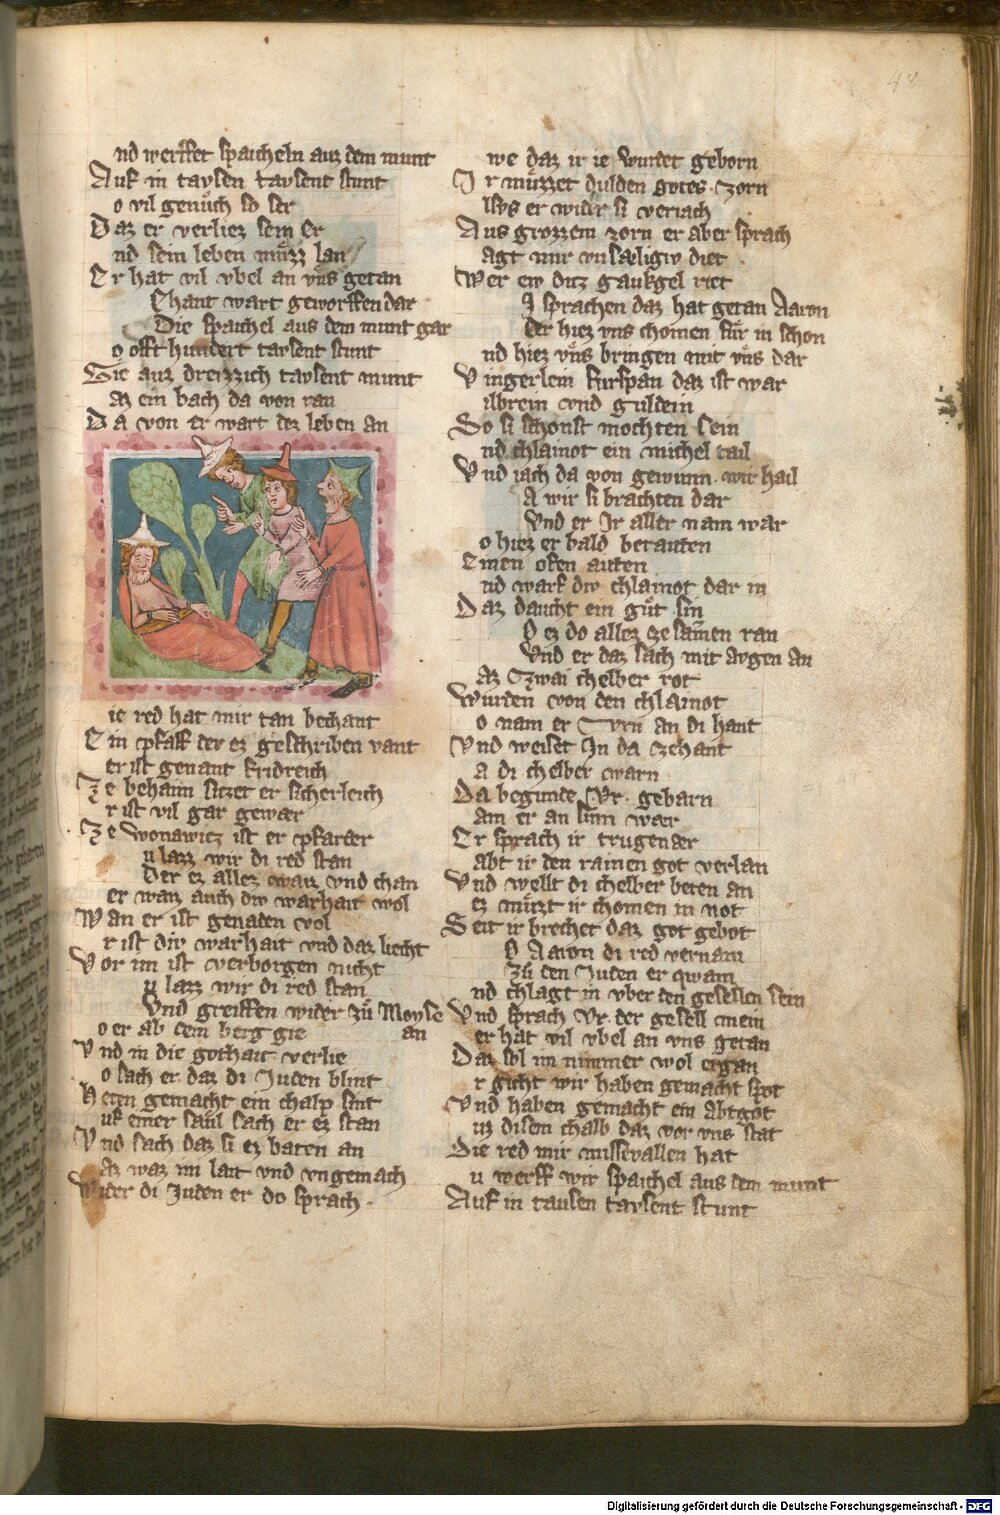 48
nd werffet spaicheln auz dem munt
Auf in taysen taysent stunt
o vil genuͦch so ser
Daz er verliez sein Er
nd sein leben muͦzz lan
Er hat vil vbel an vns getan
Ehant wart geworffen dar
Die spaichel aus dem munt gar
o offt hundert taysent stunt
Sie auz dreizzich taysent munt
az ein bach da von ran
Da von er wart dez leben an
ie red hat mir tan bechant
Ein pfaff der ez geschriben vant
er ist genant Fridreich
Ze behaim siczet er sicherleich
r ist vil gar gewaer
Ze Wonawicz ist er pfarrer
u lazz wir di red stan
Der ez allez waiz vnd chan
er waiz auch div warhait wol
Wan er ist genaden vol
r ist div warhait vnd daz liecht
Vor im ist verborgen nicht
u lazz wir di red stan
Vnd greiffen wider zuͦ Moyse
o er ab dem berg gie an
Vnd in die gothait verlie
o sach er daz di Juden blint
Heten gemacht ein chalp sint
uf einer saͤul sach er ez stan
Vnd sach daz si ez baten an
az waz im lait vnd vngemach
Wider di Juden er do sprach.
we daz ir ie wurdet geborn
Ir muͤzzet dulden gotes zorn
lsys er wider si veriach
Aus grozzem zorn er aber sprach
agt mir vnsaeligiv diet
Wer ew ditz gaukgel riet
I sprachen daz hat getan Aaron
Der hiez vns chomen fuͤr in schon
nd hiez vns bringen mit vns dar
Vingerlein Furspan daz ist war
ilbrein vnd guldein
So si schonst mochten sein
nd chlainot ein michel tail
Vnd iach da von gewinn wir hail
A wir si brachten dar
Vnd er Ir aller nam war
o hiez er bald beraiten
Einen ofen aiten
nd warf div chlainot dar in
Daz daucht ein guͦt sin
O ez do allez ze samen ran
Vnd er daz sach mit avgen an
az Zwai chelber rot
Wurden von den chlainot
o nam er Vrn an di hant
Vnd weiset In da zehant
a di chelber warn
Da begunde Vr. gebarn
am er an sinn waer
Er sprach ir trugenaer
abt ir den rainen got verlan
Vnd wellt di chelber beten an
ez muͤzt ir chomen in not
Seit ir brechet daz got gebot
O Aaron di red vernam
Zuͦ den Juden er qwam
nd chlagt in vber den gesellen sein
Vnd sprach Vr. der gesell mein
er hat vil vbel an vns getan
Daz sol im nimmer wol ergan
r gicht wir haben gemacht spot
Vnd haben gemacht ein abtgot
uz disem chalb daz vor vns stat
Die red mir missevallen hat
u werff wir spaichel aus dem munt
Auf in tausen taysent stunt
Digitalisierung gefördert durch die Deutsche Forschungsgemeinschaft - DFG